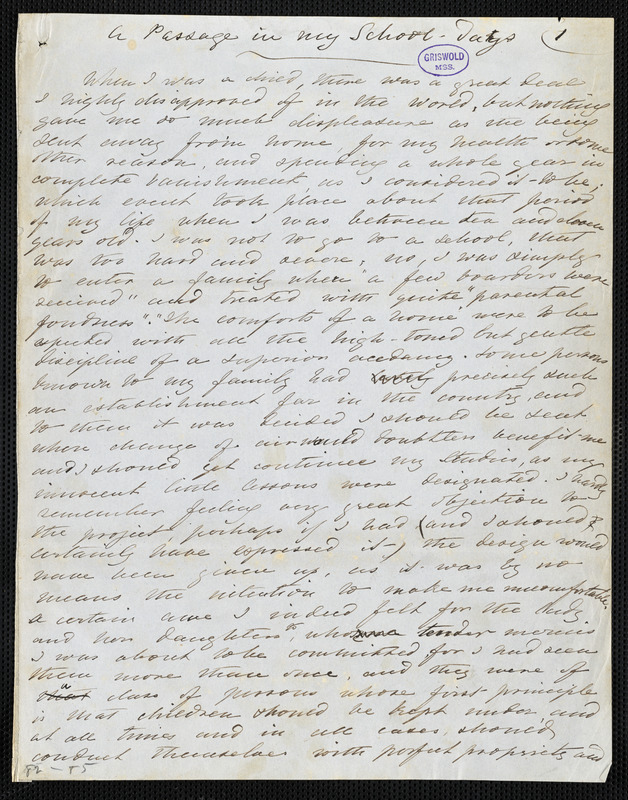 A Passage in my School-Days
1
GRISWOLD
MSS.
When I was a child, there was a great deal
I highly disapproved of in the world, but nothing
gave me so much displeasure as the being
sent away from home, for my health or some
other reason, and spending a whole year in
complete banishment, as I considered it to be;
which event took place about that period
of my life when I was between ten and eleven
years old. I was not to go to a school, that
was too hard and severe; no, I was simply
to enter a family where "a few boarders were
received" and treated with quite "parental
fondness". The comforts of a home were to be
united with all the high-toned but gentle
discipline of a superior academy. Some persons
known to my family had precisely such
an establishment far in the country, and
to them it was decided I should be sent
where change of air would doubtless benefit me
and I should yet continue my studies, as my
innocent little lessons were designated. I hardly
remember feeling any great objection to
the project, perhaps if I had (and I should
certainly have expressed it) the design would
have been given up, as it was by no
means the intention to make me uncomfortable.
A certain awe I indeed felt for the lady
and her daughters to whose tender mercies
I was about to be committed for I had seen
them more than once, and they were of
a class of persons whose first principle
is that children should be kept under, and
at all times and in all cases should
conduct themselves with perfect propriety and
82-85